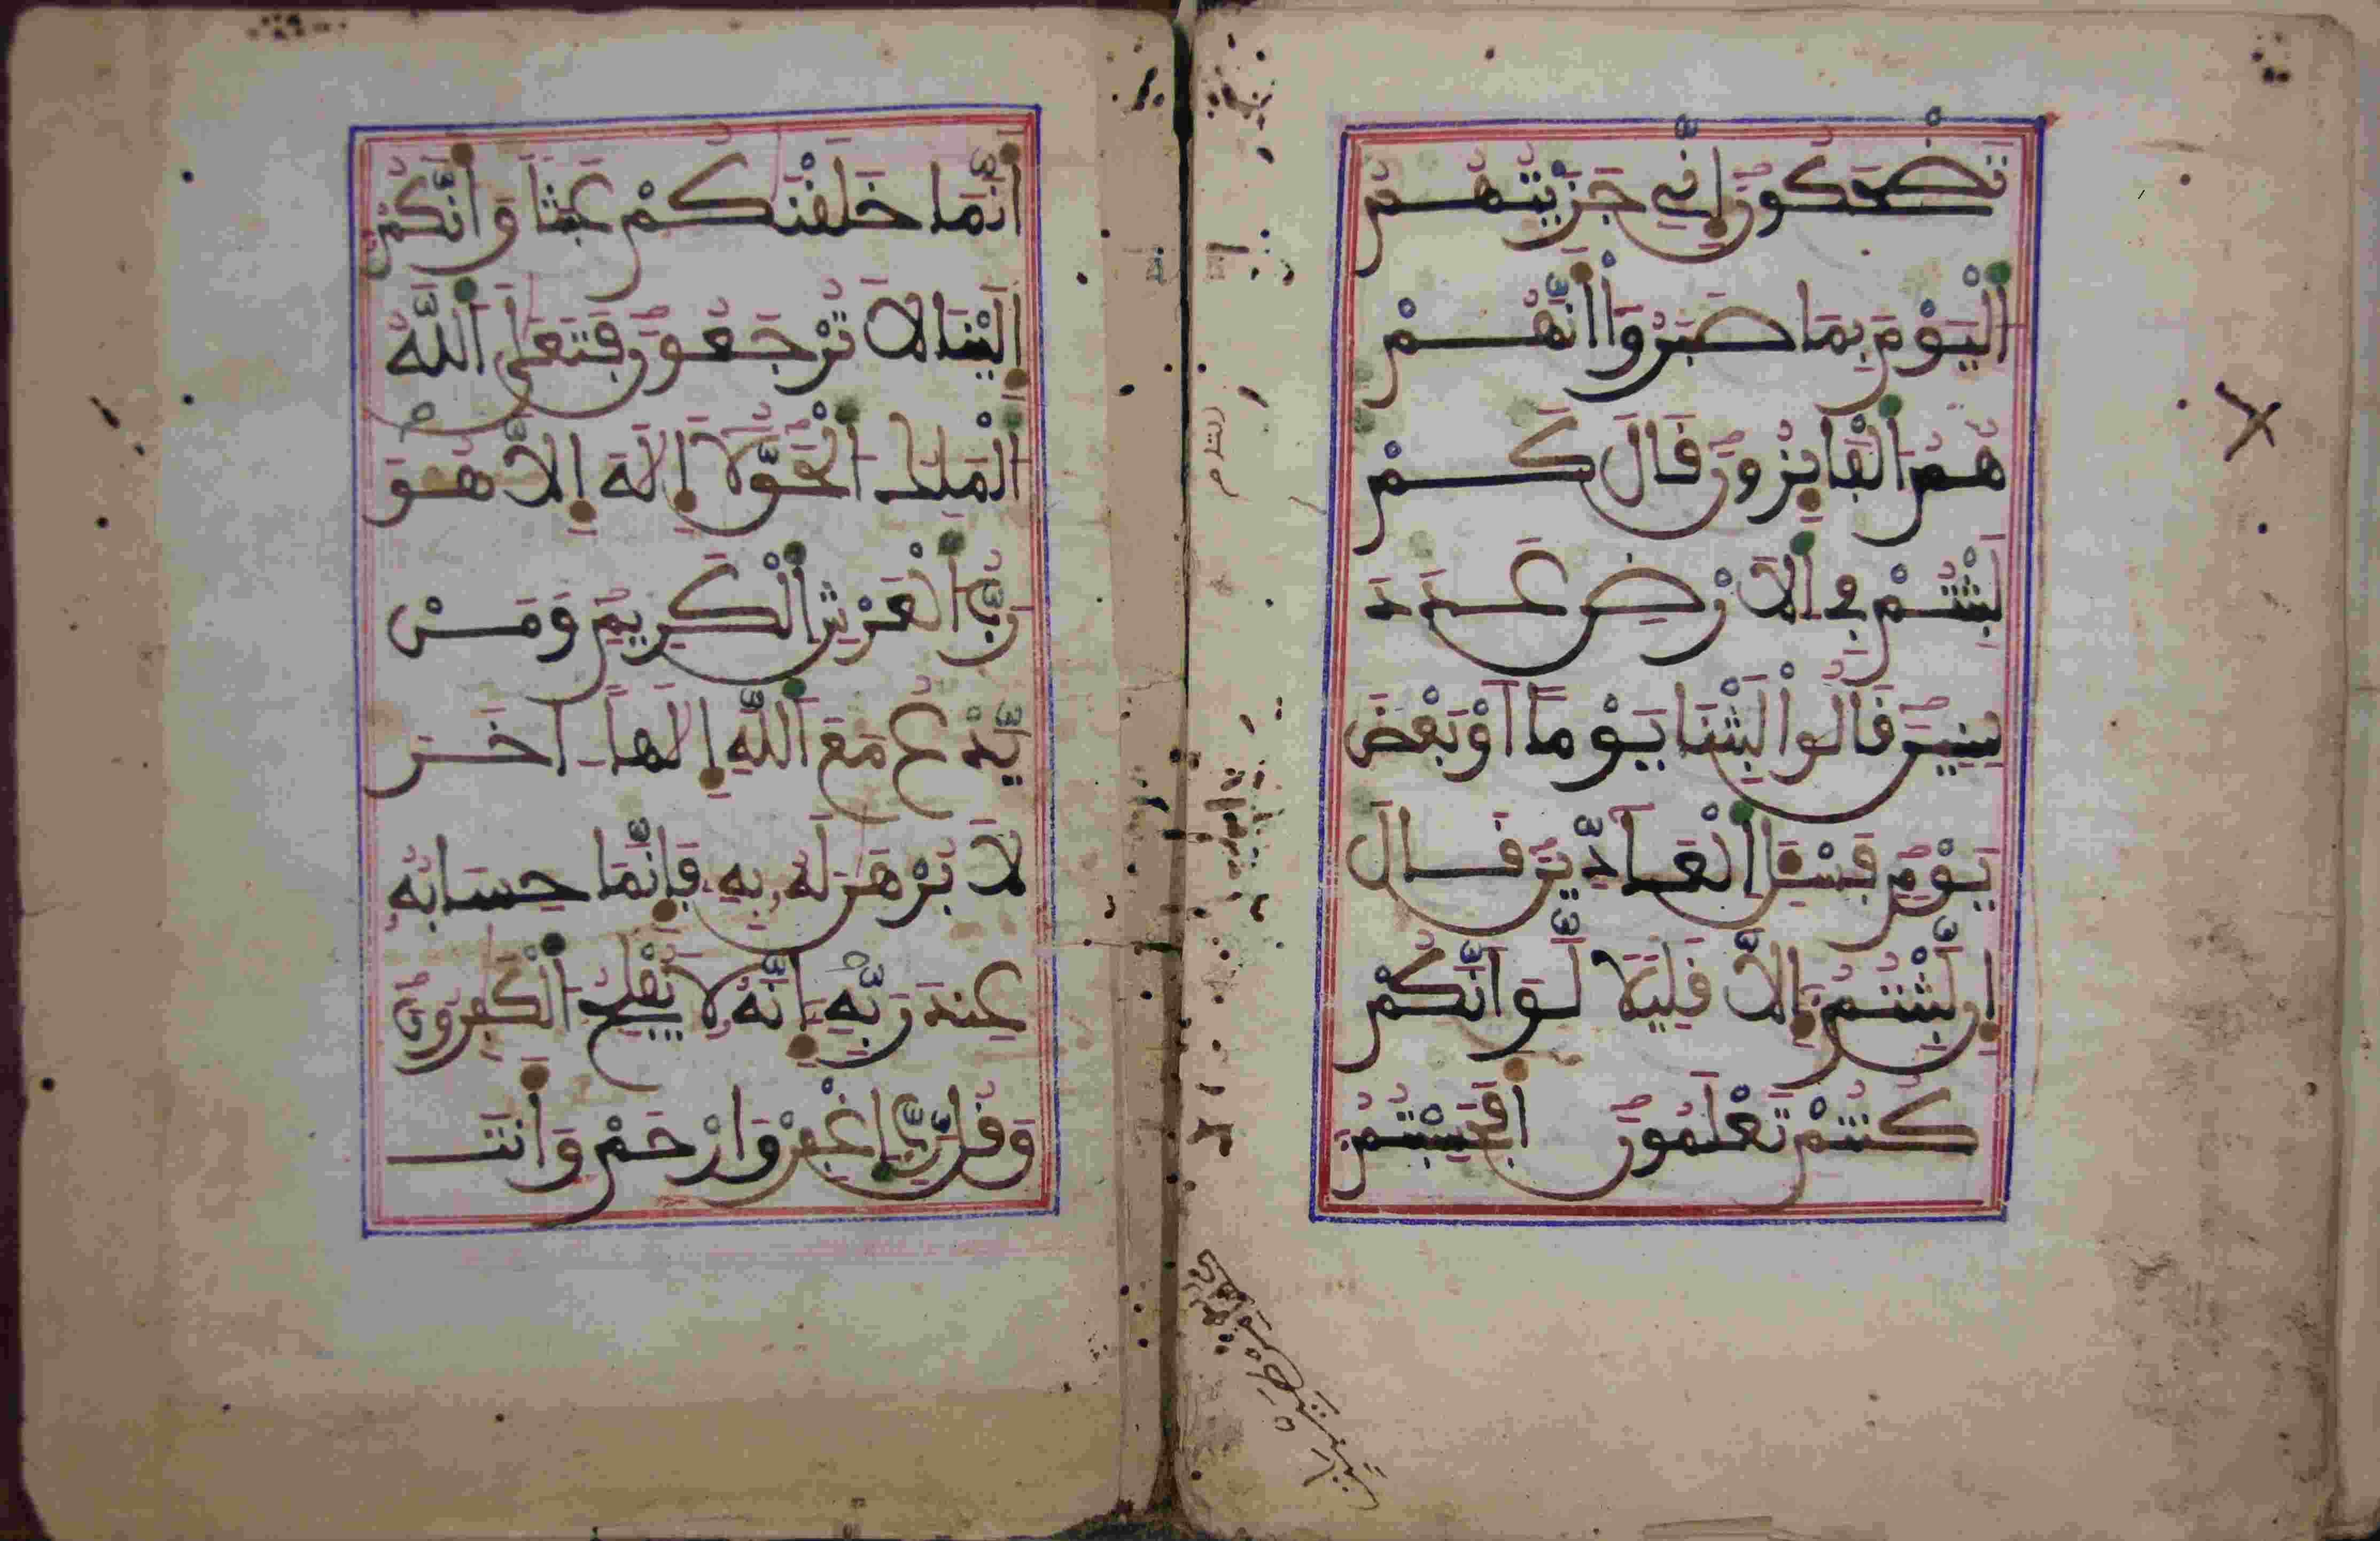 تَضْحَكُونَ إِنِّي جَزَيْتُهُمُ
اَلْيَوْمَ بِمَا صَبَرُواْ أَنَّهُمْ
هُمُ اَلْفَآئِزُونَ قَالَ كَمْ
لَبِثْتُمْ فِي اِلَارْضِ عَدَدَ
سِنِينَ قَالُواْ لَبِثْنَا يَوْماً اَوْ بَعْضَ
يَوْمٍ فَسْـَٔلِ اِلْعَآدِّينَ قَالَ
إِن لَّبِثْتُمُۥ إِلَّا قَلِيلًا لَّوَ اَنَّكُمْ
كُنتُمْ تَعْلَمُونَ أَفَحَسِبْتُمُۥ
أَنَّمَا خَلَقْنَٰكُمْ عَبَثاً وَأَنَّكُمُۥ
إِلَيْنَا لَا تُرْجَعُونَ فَتَعَٰلَى اَللَّهُ
اُلْمَلِكُ اُلْحَقُّ لَا إِلَٰهَ إِلَّا هُوَ
رَبُّ اُلْعَرْشِ اِلْكَرِيمِ وَمَنْ
يَّدْعُ مَعَ اَللَّهِ إِلَٰهاً ـ اخَرَ
لَا بُرْهَٰنَ لَهُۥ بِهِۦ فَإِنَّمَا حِسَابُهُۥ
عِندَ رَبِّهِۦ إِنَّهُۥ لَا يُفْلِحُ اُلْكَٰفِرُونَ
وَقُل رَّبِّ اِغْفِرْ وَارْحَمْ وَأَنتَ